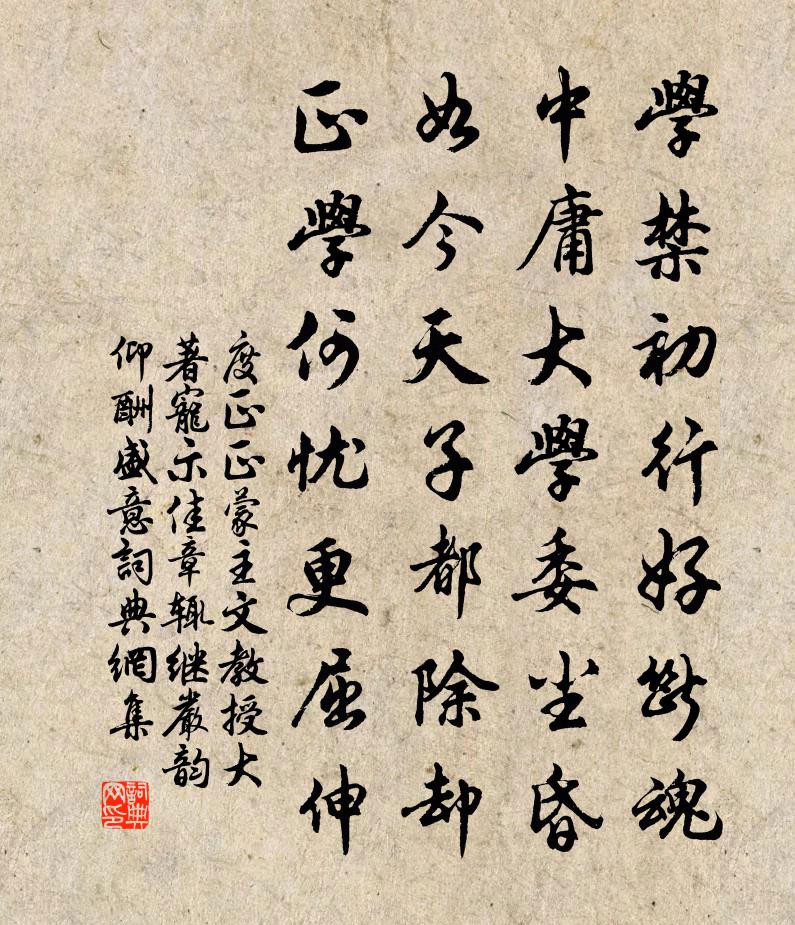 學禁初行好斷魂
中庸大學委尘昏
如今天子都除却
正學何忧更屈伸
度正正蒙主文教授大
著寵示佳章輒継嚴韵
仰酬盛意詞典網集
詞典网印